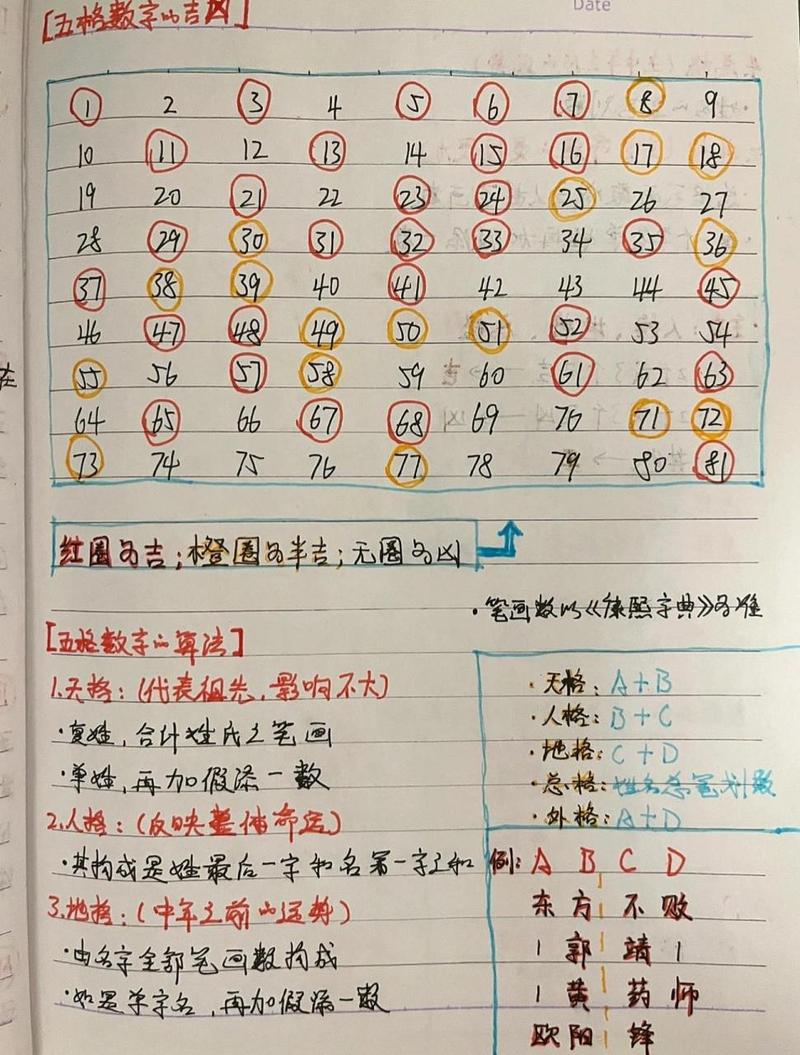 Date
[五格数字的吉凶]
1 2 3 4 5 6 7 8 9
10 11 12 13 14 15 16 17 18
19 20 21 22 23 24 25 26 27
28 29 30 31 32 33 34 35 36
37 38 39 40 41 42 43 44 45
46 47 48 49 50 51 52 53 54
55 56 57 58 59 60 61 62 63
64 65 66 67 68 69 70 71 72
73 74 75 76 77 78 79 80 81
红圈为吉；橙圈为半吉；无圈为凶
·笔画数以《康熙字典》为准
[五格数字的算法]
1.天格：(代表祖先，影响不大)
·复姓，合计姓氏之笔画
·单姓，再加假添一数
2.人格：(反映整体命运)
·其构成是姓最后一字和名第一字之和
3.地格：(中年之前的运势)
·由名字全部笔画数构成
·如是单字名，再加假添一数
·天格：A+B
·人格：B+C
·地格：C+D
·总格：姓名总笔划数
·外格：A+D
例：A B C D
东 方 不 败
1 郭 靖 1
1 黄 药 师
欧 阳 锋